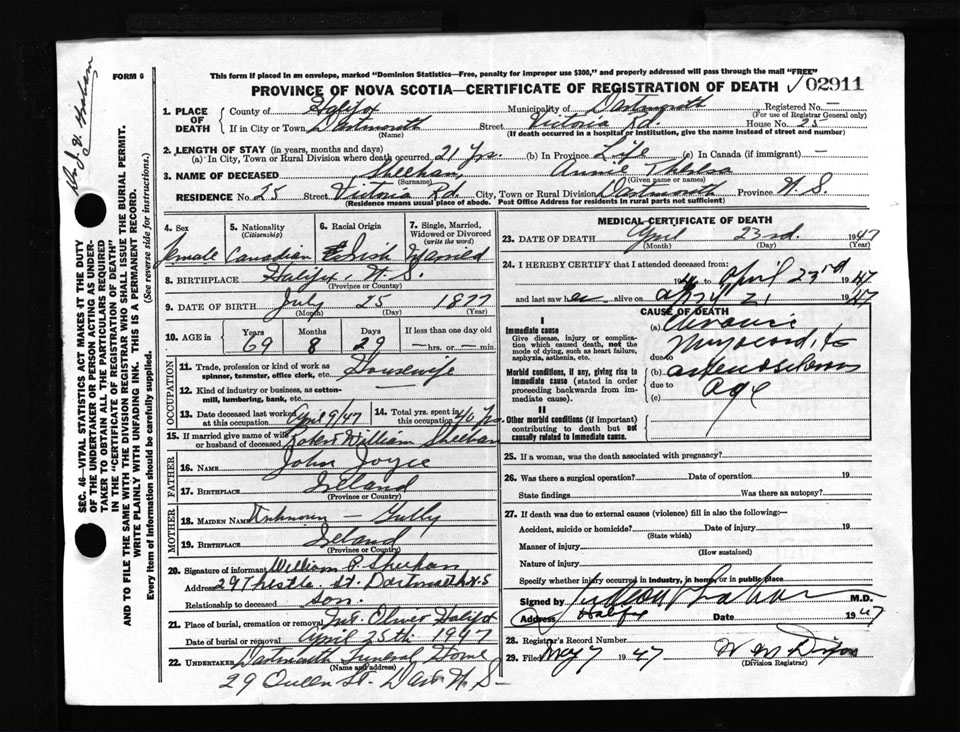 FORM 6
This form if placed in an envelope, marked "Dominion Statistics—Free, penalty for improper use $300," and properly addressed will pass through the mail "FREE"
PROVINCE OF NOVA SCOTIA—CERTIFICATE OF REGISTRATION OF DEATH 02911
1. PLACE OF DEATH
County of Halifax Municipality of Dartmouth Registered No. —
(For use of Registrar General only)
If in City or Town Dartmouth Street Victoria Rd. House No. 25
(Name) (If death occurred in a hospital or institution, give the name instead of street and number)
2. LENGTH OF STAY (in years, months and days)
(a) In City, Town or Rural Division where death occurred 21 Yrs. (b) In Province Life (c) In Canada (if immigrant) —
3. NAME OF DECEASED Sheehan, Annie Theresa
(Surname) (Given name or names)
RESIDENCE No. 25 Street Victoria Rd. City, Town or Rural Division Dartmouth Province N.S.
(Residence means usual place of abode. Post Office Address for residents in rural parts not sufficient)
4. Sex female
5. Nationality (Citizenship) Canadian
6. Racial Origin Irish
7. Single, Married, Widowed or Divorced (write the word) Married
8. BIRTHPLACE Halifax, N.S.
(Province or Country)
9. DATE OF BIRTH July 25 1877
(Month) (Day) (Year)
10. AGE in Years 69 Months 8 Days 29 If less than one day old — hrs. or — min.
OCCUPATION
11. Trade, profession or kind of work as spinner, teamster, office clerk, etc. Housewife
12. Kind of industry or business, as cotton-mill, lumbering, bank, etc. —
13. Date deceased last worked at this occupation April 9/47
14. Total yrs. spent in this occupation 40 Yrs.
15. If married give name of wife or husband of deceased Robert William Sheehan
FATHER
16. NAME John Joyce
17. BIRTHPLACE Ireland
(Province or Country)
MOTHER
18. MAIDEN NAME Unknown — Gully
19. BIRTHPLACE Ireland
(Province or Country)
20. Signature of informant William P. Sheehan
Address 29 Thistle St. Dartmouth N.S
Relationship to deceased son.
21. Place of burial, cremation or removal Mt. Olivet Halifax
Date of burial or removal April 25th 1947
22. UNDERTAKER Dartmouth Funeral Home
(Name and address)
29 Queen St. Dart N.S—
MEDICAL CERTIFICATE OF DEATH
23. DATE OF DEATH April 23rd. 1947
(Month) (Day) (Year)
24. I HEREBY CERTIFY that I attended deceased from:
to April 23rd 1947
and last saw her alive on 21 1947
CAUSE OF DEATH
I
Immediate cause
Give disease, injury or complication which caused death, not the mode of dying, such as heart failure, asphyxia, asthenia, etc.
Morbid conditions, if any, giving rise to immediate cause (stated in order proceeding backwards from immediate cause).
II
Other morbid conditions (if important) contributing to death but not causally related to immediate cause.
(a) Chronic
Myocarditis
due to
(b)
due to age
(c)
25. If a woman, was the death associated with pregnancy?
26. Was there a surgical operation? Date of operation 19
State findings Was there an autopsy?
27. If death was due to external causes (violence) fill in also the following:—
Accident, suicide or homicide? Date of injury 19
(State which)
Manner of injury
(How sustained)
Nature of injury
Specify whether injury occurred in industry, in home, or in public place
Signed by M.D.
Address Halifax Date 1947
28. Registrar's Record Number
29. Filed May 7 1947 W W Dixon
(Division Registrar)
SEC. 46—VITAL STATISTICS ACT MAKES IT THE DUTY OF THE UNDERTAKER OR PERSON ACTING AS UNDERTAKER TO OBTAIN ALL THE PARTICULARS REQUIRED IN THE "CERTIFICATE OF REGISTRATION OF DEATH" AND TO FILE THE SAME WITH THE DIVISION REGISTRAR WHO SHALL ISSUE THE BURIAL PERMIT.
WRITE PLAINLY WITH UNFADING INK. THIS IS A PERMANENT RECORD.
Every item of information should be carefully supplied. (See reverse side for instructions.)